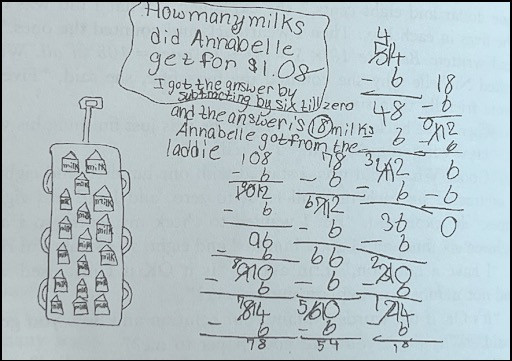 How many milks
did Annabelle
get for $1.08
I got the answer by
subtracting by six till zero
and the answer is 18 milks
Annabelle got from the
laddie
milk
milk
milk
milk
milk
milk
milk
milk
milk
milk
milk
milk
milk
milk
108
- 6
- 6
96
- 6
8910
- 6
7814
- 6
78
78
- 6
6712
- 6
66
- 6
5610
- 6
54
4
514
- 6
48
- 6
3412
- 6
36
- 6
2310
- 6
1214
- 6
18
18
- 6
0112
- 6
6
- 6
0